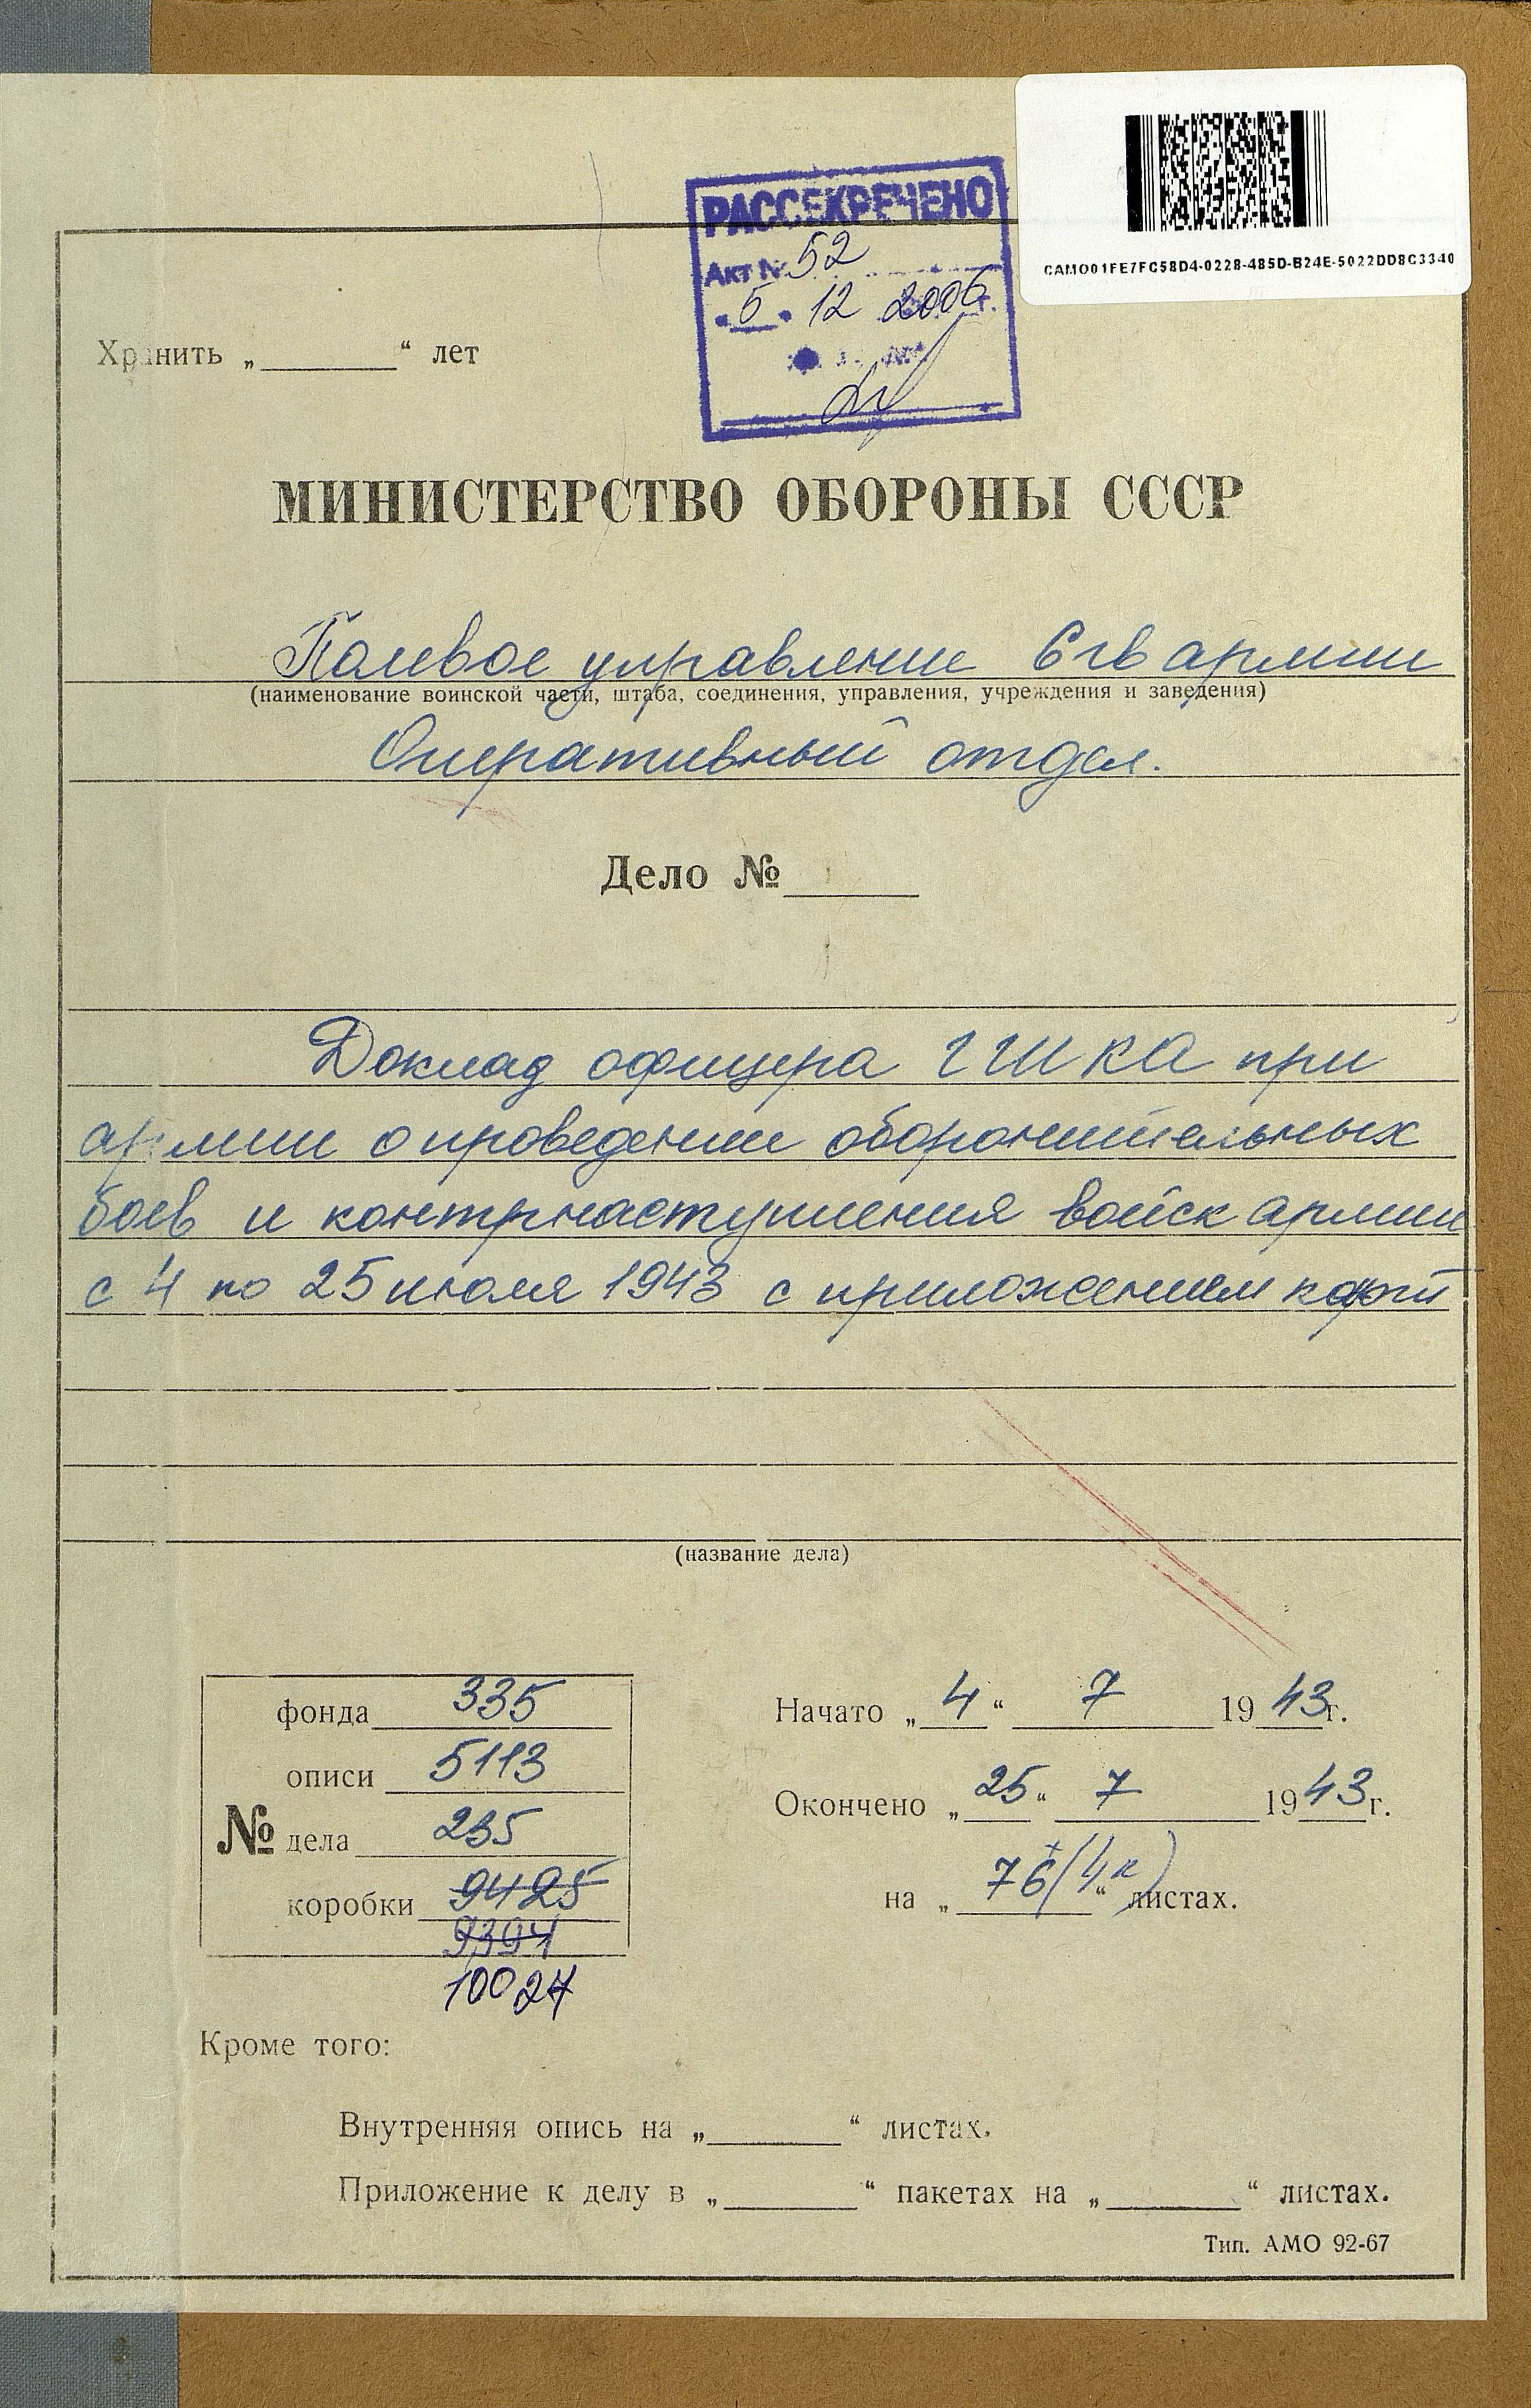 CAMO01FE7FC58D4-0228-485D-B24E-5022DD8C3340
РАССЕКРЕЧЕНО
Акт № 52
5 . 12 2006 г.
Хранить „ “ лет
МИНИСТЕРСТВО ОБОРОНЫ СССР
Полевое управление 6 гв армии
(наименование воинской части, штаба, соединения, управления, учреждения и заведения)
Оперативный отдел.
Дело №
Доклад офицера ГШ КА при
армии о проведении оборонительных
боев и контрнаступления войск армии
с 4 по 25 июля 1943 с приложением карт
(название дела)
фонда 335
описи 5113
№ дела 235
коробки 9425
9394
10027
Начато „4“ 7 1943г.
Окончено „25“ 7 1943г.
на „76 (4к)“ листах.
Кроме того:
Внутренняя опись на „ “ листах.
Приложение к делу в „ “ пакетах на „ “ листах.
Тип. АМО 92-67